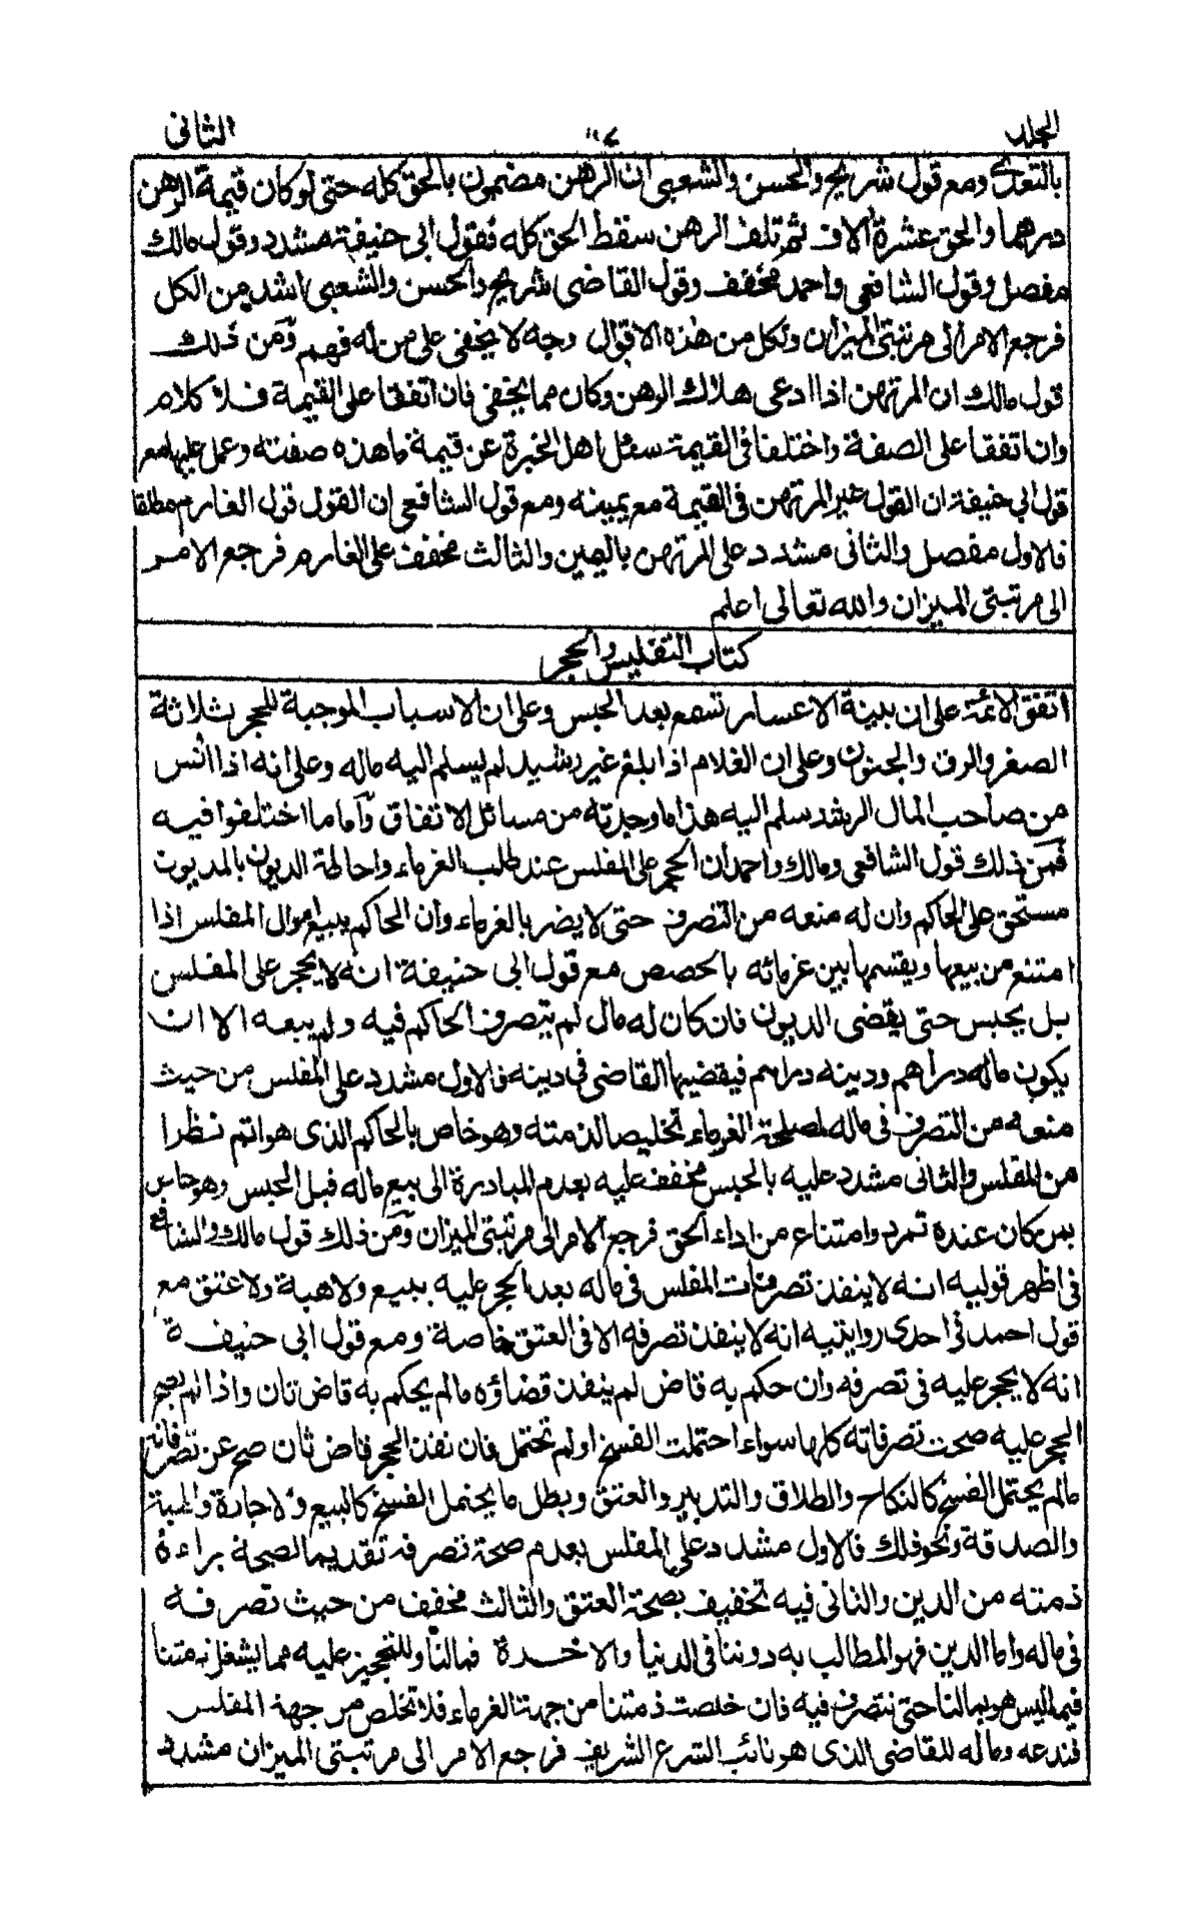 المجلد الثانى
بالتعدى ومع قول شريح والحسن والشعبى ان الرهن مضمون بالحق كله حتى لو كان قيمة الرهن
درهما والحق عشرة آلاف ثم تلف الرهن سقط الحق كله فقول ابى حنيفة مشدد وقول مالك
مفصل وقول الشافعى واحمد مخفف وقول القاضى شريح والحسن والشعبى اشد من الكل
فرجع الامر الى مرتبتى الميزان ولكل من هذه الاقوال وجه لا يخفى على من له فهم ومن ذلك
قول مالك ان المرتهن اذا ادعى هلاك الرهن وكان مما يخفى فان اتفقا على القيمة فلا كلام
وان اتفقا على الصفة واختلفا فى القيمة سئل اهل الخبرة عن قيمة ما هذه صفته وعمل عليها مع
قول ابى حنيفة ان القول غير المرتهن فى القيمة مع يمينه ومع قول الشافعى ان القول قول الغارم مطلقا
فالاول مفصل والثانى مشدد على المرتهن باليمين والثالث مخفف على الغارم فرجع الامر
الى مرتبتى الميزان والله تعالى اعلم
كتاب التفليس والحجر
اتفق الائمة على ان بينة الاعسار تسمع بعد الحبس وعلى ان الاسباب الموجبة للحجر ثلاثة
الصغر والرق والجنون وعلى ان الغلام اذا بلغ غير رشيد لم يسلم اليه ماله وعلى انه اذا انس
من صاحب المال الرشد سلم اليه هذا ما وجدته من مسائل الاتفاق واما ما اختلفوا فيه
فمن ذلك قول الشافعى ومالك واحمد ان الحجر على المفلس عند طلب الغرماء واحاطة الديون بالمديون
مستحق على الحاكم وان له منعه من التصرف حتى لا يضر بالغرماء وان الحاكم يبيع اموال المفلس اذا
امتنع من بيعها ويقسمها بين غرمائه بالحصص مع قول ابى حنيفة انه لا يحجر على المفلس
بل يحبس حتى يقضى الديون فان كان له مال لم يتصرف الحاكم فيه ولم يبعه الا ان
يكون ماله دراهم ودينه دراهم فيقضيها القاضى فى دينه فالاول مشدد على المفلس من حيث
منعه من التصرف فى ماله لمصلحة الغرماء تخليصا لذمته وهو خاص بالحاكم الذى هو اتم نظرا
من المفلس والثانى مشدد عليه بالحبس مخفف عليه بعدم المبادرة الى بيع ماله قبل الحبس وهو خاص
بمن كان عنده تمرد وامتناع من اداء الحق فرجع الامر الى مرتبتى الميزان ومن ذلك قول مالك والشافعى
فى اظهر قوليه انه لا ينفذ تصرفات المفلس فى ماله بعد الحجر عليه ببيع ولا هبة ولا عتق مع
قول احمد فى احدى روايتيه انه لا ينفذ تصرفه الا فى العتق خاصة ومع قول ابى حنيفة
انه لا يحجر عليه فى تصرفه وان حكم به قاض لم ينفذ قضاؤه مالم يحكم به قاض ثان واذا لم يصح
الحجر عليه صحت تصرفاته كلها سواء احتملت الفسخ او لم تحتمل فان نفذ الحجر قاض ثان صح عن تصرفاته
مالم يحتمل الفسخ كالنكاح والطلاق والتدبير والعتق وبطل ما يحتمل الفسخ كالبيع والاجارة والهبة
والصدقة ونحو ذلك فالاول مشدد على المفلس بعدم صحة تصرفه تقديما لصحة براءة
ذمته من الدين والثانى فيه تخفيف بصحة العتق والثالث مخفف من حيث تصرفه
فى ماله واما الدين فهو المطالب به دوننا فى الدنيا والاخرة فمالنا وللتحجيز عليه مما يشغل ذمتنا
فيما ليس هو بمالنا حتى نتصرف فيه فان خلصت ذمتنا من جهة الغرماء فلا تخلص من جهة المفلس
فندعه وماله للقاضى الذى هو نائب الشرع الشريف فرجع الامر الى مرتبتى الميزان مشدد